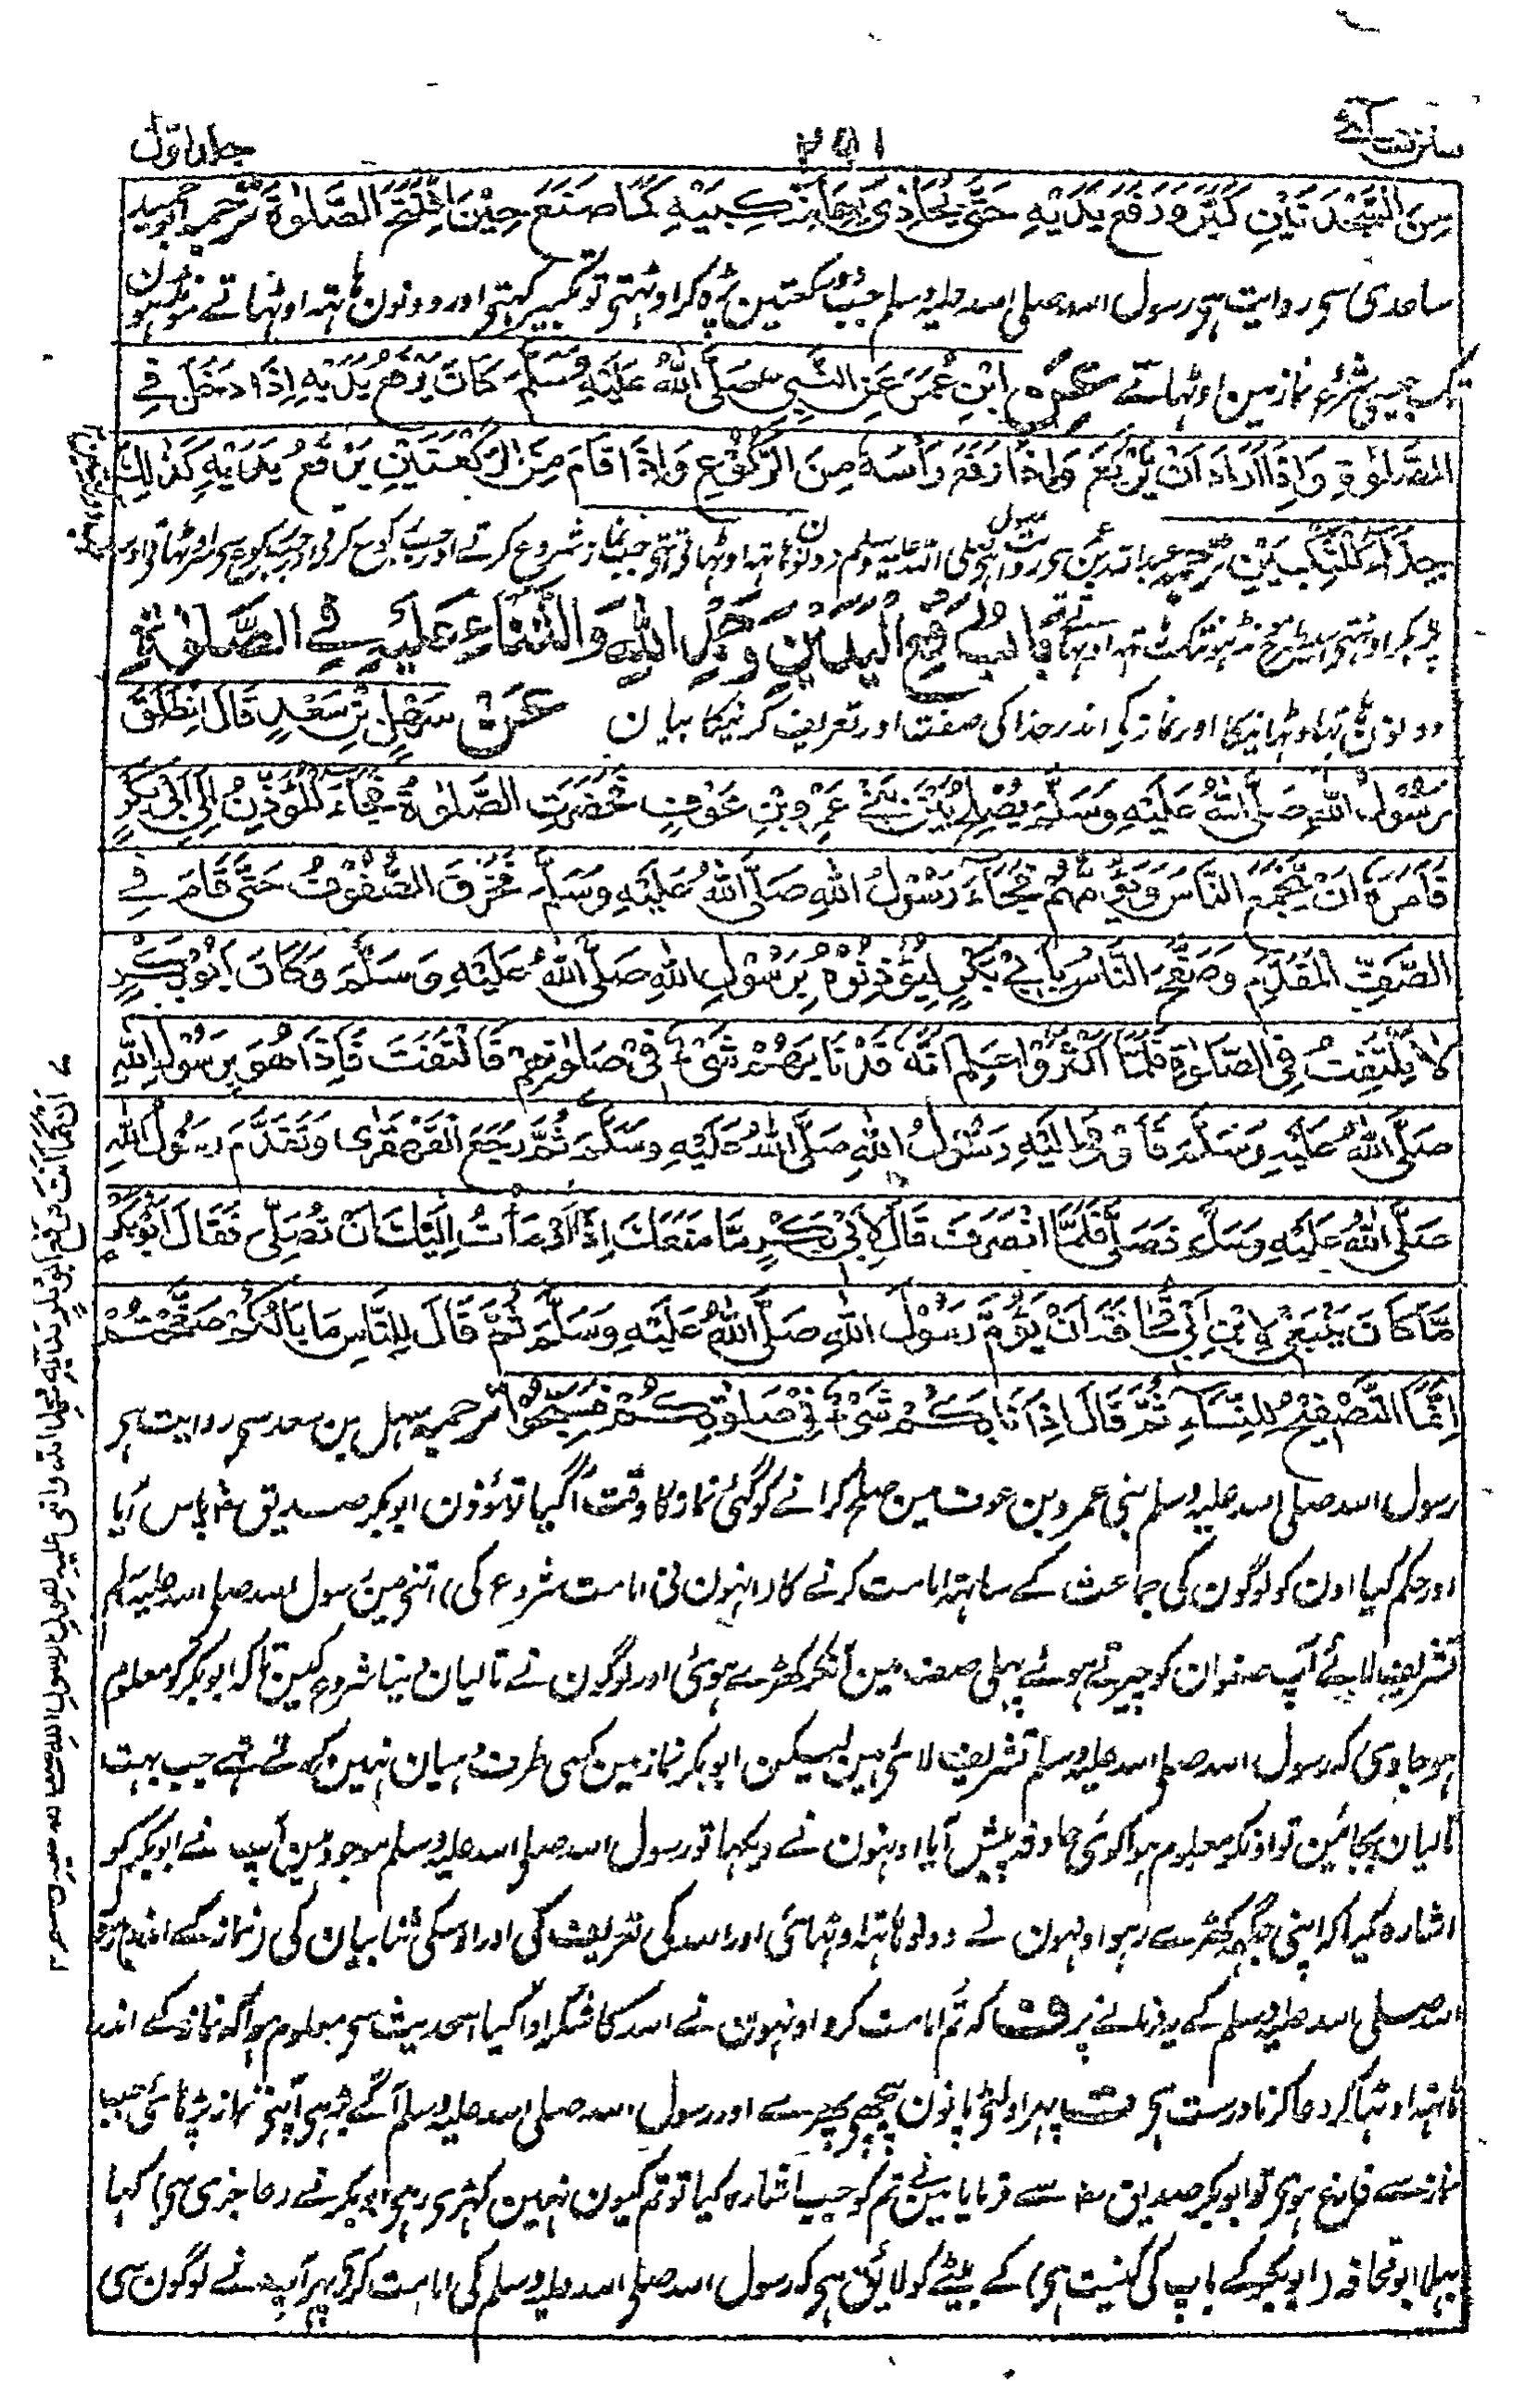 سنن نسائی
۲۵۱
جلد اول
مِنَ السَّجْدَتَيْنِ كَبَّرَ وَرَفَعَ يَدَيْهِ حَتّٰى يُحَاذِيَ بِهِمَا مَنْكِبَيْهِ كَمَا صَنَعَ حِيْنَ افْتَتَحَ الصَّلٰوةَ ترجمہ ابو حمید
ساعدی سے روایت ہی رسول اللہ صلی اللہ علیہ وسلم جب دو رکعتین پڑہ کر اوٹہتی تو تکبیر کہتی اور دونون ہاتہہ اوٹہاتے مونڈہون
تک جیسی شروع نماز مین اوٹہاتے عَنْ ابْنِ عُمَرَ عَنِ النَّبِيِّ صَلَّى اللّٰهُ عَلَيْهِ وَسَلَّمَ كَانَ يَرْفَعُ يَدَيْهِ اِذَا دَخَلَ فِي
الصَّلٰوةِ وَاِذَا اَرَادَ اَنْ يَّرْكَعَ وَاِذَا رَفَعَ رَأْسَهٗ مِنَ الرُّكُوْعِ وَاِذَا قَامَ مِنَ الرَّكْعَتَيْنِ يَرْفَعُ يَدَيْهِ كَذٰلِكَ
حِذَاءَ الْمَنْكِبَيْنِ ترجمہ عبد اللہ بن عمر سی روایت ہی رسول صلی اللہ علیہ وسلم دونون ہاتہہ اوٹہاتی تہی جب نماز شروع کرتے اور جب رکوع کرتی اور جب رکوع سی سر اوٹہاتی اور
پڑہکر اوٹہتی اسیطرح مونڈہون تک ہاتہہ اوٹہاتے تہی بَابُ رَفْعِ الْيَدَيْنِ وَحَمْدِ اللّٰهِ وَالثَّنَاءِ عَلَيْهِ فِي الصَّلٰوةِ
دونون ہاتہہ اوٹہانیکا اور نماز کی اندر خدا کی صفت اور تعریف کرنیکا بیان عَنْ سَهْلِ بْنِ سَعْدٍ قَالَ انْطَلَقَ
رَسُوْلُ اللّٰهِ صَلَّى اللّٰهُ عَلَيْهِ وَسَلَّمَ يُصْلِحُ بَيْنَ بَنِيْ عَمْرِو بْنِ عَوْفٍ فَحَضَرَتِ الصَّلٰوةُ فَجَاءَ الْمُؤَذِّنُ اِلٰى اَبِيْ بَكْرٍ
فَاَمَرَهٗ اَنْ يَّجْمَعَ النَّاسَ وَيَؤُمَّهُمْ فَجَاءَ رَسُوْلُ اللّٰهِ صَلَّى اللّٰهُ عَلَيْهِ وَسَلَّمَ فَخَرَقَ الصُّفُوْفَ حَتّٰى قَامَ فِي
الصَّفِّ الْمُقَدَّمِ وَصَفَّحَ النَّاسُ بِاَبِيْ بَكْرٍ لِيُؤْذِنُوْهُ بِرَسُوْلِ اللّٰهِ صَلَّى اللّٰهُ عَلَيْهِ وَسَلَّمَ وَكَانَ اَبُوْ بَكْرٍ
لَا يَلْتَفِتُ فِي الصَّلٰوةِ فَلَمَّا اَكْثَرُوْا عَلِمَ اَنَّهٗ قَدْ نَابَهُمْ شَيْءٌ فِيْ صَلٰوتِهِمْ فَالْتَفَتَ فَاِذَا هُوَ بِرَسُوْلِ اللّٰهِ
صَلَّى اللّٰهُ عَلَيْهِ وَسَلَّمَ فَاَوْمٰى اِلَيْهِ رَسُوْلُ اللّٰهِ صَلَّى اللّٰهُ عَلَيْهِ وَسَلَّمَ ثُمَّ رَجَعَ الْقَهْقَرٰى وَتَقَدَّمَ رَسُوْلُ اللّٰهِ
صَلَّى اللّٰهُ عَلَيْهِ وَسَلَّمَ فَصَلّٰى فَلَمَّا انْصَرَفَ قَالَ لِاَبِيْ بَكْرٍ مَّا مَنَعَكَ اِذْ اَوْمَأْتُ اِلَيْكَ اَنْ تُصَلِّيَ فَقَالَ اَبُوْ بَكْرٍ
مَّا كَانَ يَنْبَغِيْ لِابْنِ اَبِيْ قُحَافَةَ اَنْ يَّؤُمَّ رَسُوْلَ اللّٰهِ صَلَّى اللّٰهُ عَلَيْهِ وَسَلَّمَ ثُمَّ قَالَ لِلنَّاسِ مَا بَالُكُمْ صَفَّحْتُمْ
اِنَّمَا التَّصْفِيْحُ لِلنِّسَاءِ ثُمَّ قَالَ اِذَا نَابَكُمْ شَيْءٌ فِيْ صَلٰوتِكُمْ فَسَبِّحُوْا ترجمہ سہل بن سعد سی روایت ہی
رسول اللہ صلی اللہ علیہ وسلم بنی عمرو بن عوف مین صلح کرانے کو گئی نماز کا وقت آگیا تو مؤذن ابو بکر صدیق رض پاس آیا
اور حکم کیا اون کو لوگون کی جماعت کے ساتہہ امامت کرنے کا (انہون نی امامت شروع کی) اتنی مین رسول اللہ صلی اللہ علیہ وسلم
تشریف لائے آپ صفوان کو چیرتے ہوئے پہلی صف مین آنکر کھڑے ہوئی اور لوگون نے تالیان دینا شروع کین تاکہ ابو بکر کو معلوم
ہو جاوی کہ رسول اللہ صلی اللہ علیہ وسلم تشریف لائی ہین لیکن ابو بکر نماز مین کسی طرف دہیان نہین کرتے تہے جب بہت
تالیان بجائین تو اونکو معلوم ہوا کوئی حادثہ پیش آیا اونہون نے دیکہا تو رسول اللہ صلی اللہ علیہ وسلم موجود ہین آپ نے ابو بکر کو
اشارہ کیا کہ اپنی جگہ کھڑے رہو اونہون نے دونون ہاتہہ اوٹہائی اور اللہ کی تعریف کی اور اوسکی ثنا بیان کی (نماز کے اندر) رسول
اللہ صلی اللہ علیہ وسلم کے یہ فرمانے پر ف کہ تم امامت کرو اونہون نے اللہ کا شکر ادا کیا اسحدیث سی معلوم ہوا کہ نماز کے اندر
ہاتہہ اوٹہا کر دعا کرنا درست ہی ف پہر اولٹی پانون پیچہی پہرے اور رسول اللہ صلی اللہ علیہ وسلم آگے بڑہی آپنی نماز پڑہائی جب
نماز سے فارغ ہوئی تو ابو بکر صدیق رض سے فرمایا مینے تم کو جب اشارہ کیا تو تم کیون نہین کہڑی رہی ابو بکر نے (عاجزی سی) کہا
بہلا ابو قحافہ (ابو بکر کے باپ کی کنیت ہی) کے بیٹے کو لائق ہی کہ رسول اللہ صلی اللہ علیہ وسلم کی امامت کرے پہر آپ نے لوگون سی